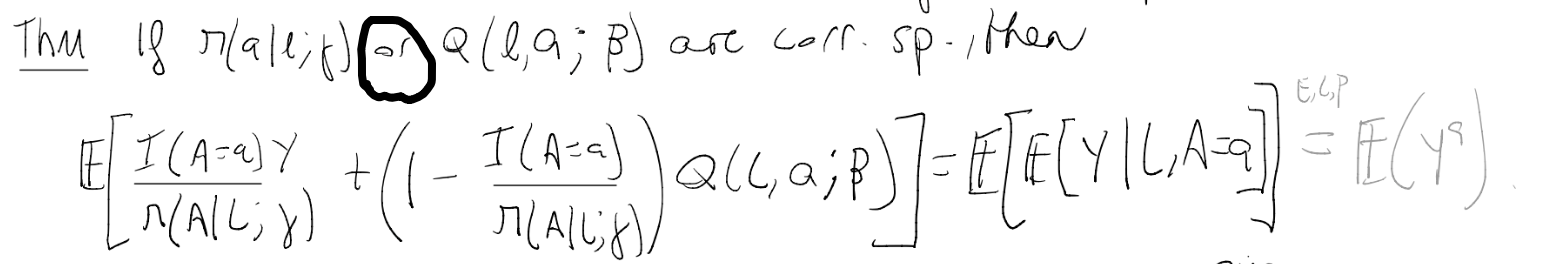 Thm If π(a|l;γ) or Q(l,a;β) are corr. sp., then
E[ I(A=a)Y / π(A|L;γ) + (1 - I(A=a) / π(A|L;γ)) Q(L,a;β) ] = E[E[Y|L,A=a]] =^{E,C,P} E(Y^a).